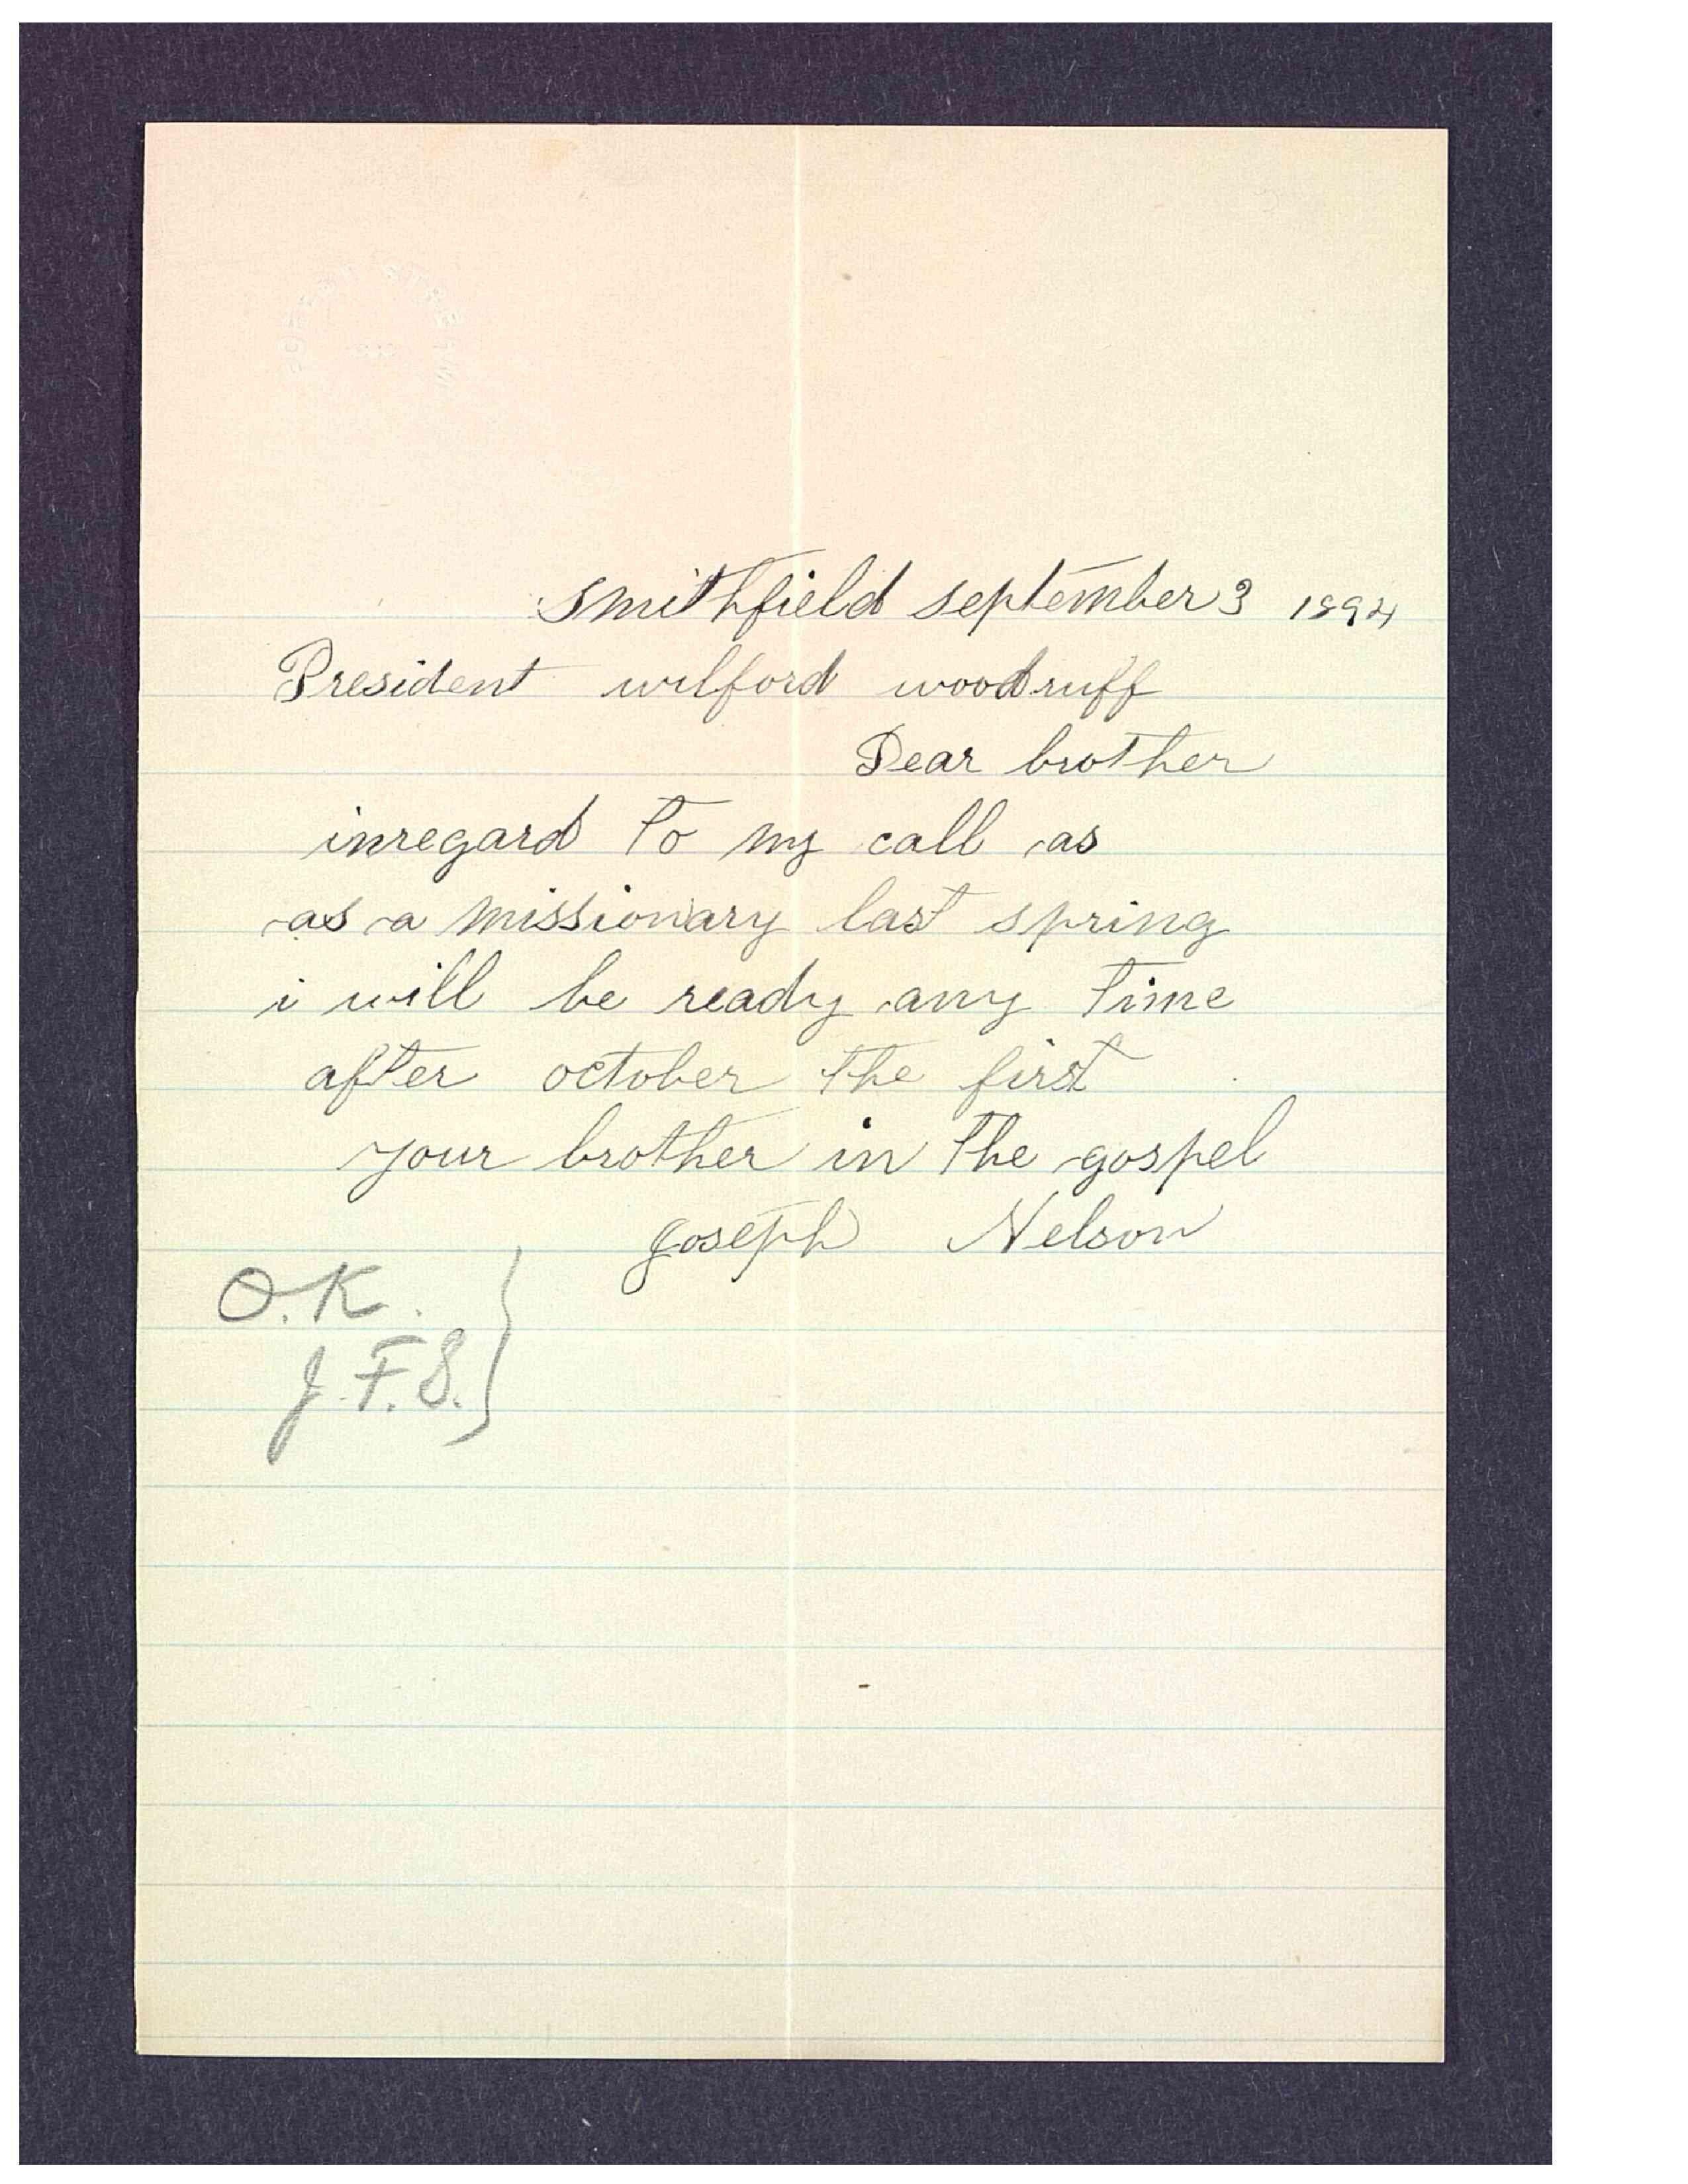 Smithfield september 3 1894
President wilford woodruff
Dear brother
inregard to my call as
as a missionary last spring
i will be ready any time
after october the first
your brother in the gospel
Joseph Nelson
O.K.
J.F.S.